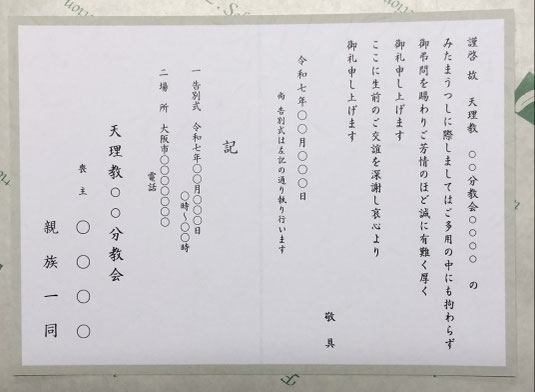 謹啓 故 天理教 ○○分教会○○○○ の
みたまうつしに際しましてはご多用の中にも拘わらず
御弔問を賜わりご芳情のほど誠に有難く厚く
御礼申し上げます
ここに生前のご交誼を深謝し哀心より
御礼申し上げます
敬具
令和七年○○月○○○日
尚 告別式は左記の通り執り行います
記
一 告別式 令和七年○○月○○○日
○時〜○○時
二 場 所 大阪市○○○○○○○
電話
天理教○○分教会
喪主 ○○○○
親族一同